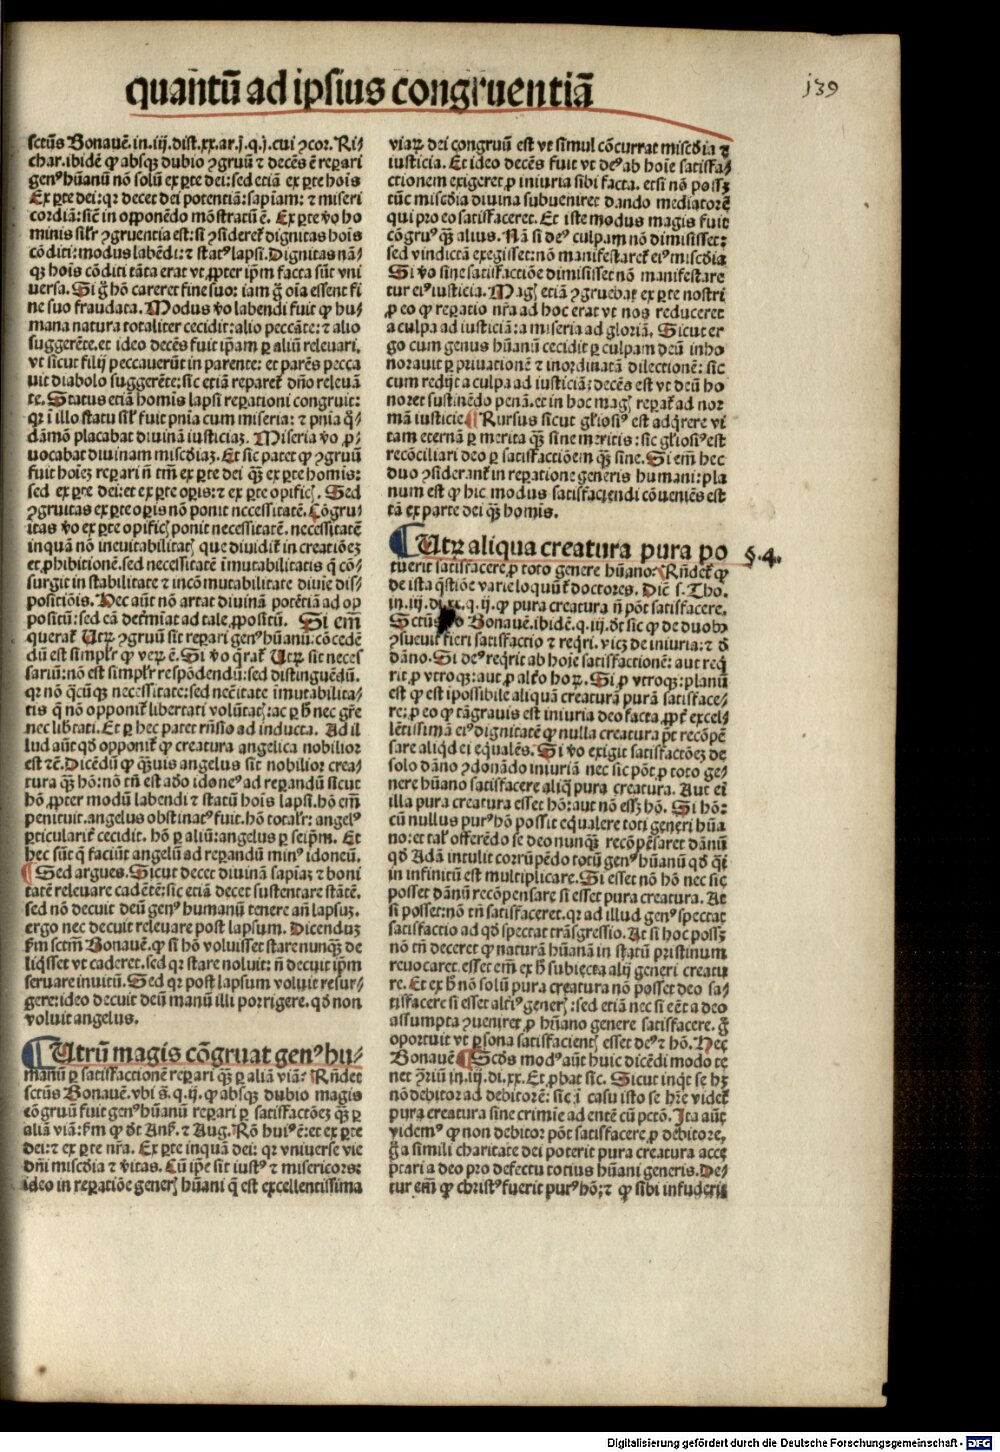 quantū ad ipsius congruentiā
139
sctūs Bonauē. in .iij. dist. xx. ar. j. q. j. cui ꝯcor. Ri-
char. ibidē ꝙ absqꝫ dubio ꝯgruū ⁊ decēs ē reꝑari
genꝰ hūanū nō solū ex ꝑte dei: sed etiā ex ꝑte hoīs
Ex ꝑte dei: qꝛ decet dei potentiā: sapiam: ⁊ miseri
cordiā: sicut in opponēdo mōstratū ē. Ex ꝑte vo ho
minis silr ꝯgruentia est: si ꝯsideret dignitas hoīs
cōditi: modus labēdi: ⁊ statꝰ lapsi. Dignitas nā-
qꝫ hoīs cōditi tāta erat vt ꝓpter ipm facta sūt vni
uersa. Si g̃ hō careret fine suo: iam g̃ oīa essent fi
ne suo fraudata. Modus vo labendi fuit ꝙ hu-
mana natura totaliter cecidit: alio peccāte: ⁊ alio
suggerēte. et ideo decēs fuit ipam ꝑ aliū releuari.
vt sicut filij peccauerūt in parente: et parēs pecca
uit diabolo suggerēte: sic etiā reparet dno releuā
te. Status etiā homis lapsi reꝑationi congruit:
qꝛ ī illo statu silr fuit pnia cum miseria: ⁊ pnia q̄-
dāmō placabat diuinā iusticiaꝫ. Miseria vo ꝓ-
uocabat diuinam miscdiaꝫ. Et sic patet ꝙ ꝯgruū
fuit hoieꝫ reꝑari nō tm ex ꝑte dei qꝫ ex ꝑte homis:
sed ex ꝑte dei: et ex ꝑte oꝑis: ⁊ ex ꝑte opificꝭ. Sed
ꝯgruitas ex ꝑte oꝑis nō ponit necessitatē. Cōgru-
itas vo ex ꝑte opificꝭ ponit necessitatē. necessitatē
inquā nō ineuitabilitatꝭ que diuidit in creatiōeꝫ
et ꝓhibitionē. sed necessitatē īmutabilitatis q̄ cō-
surgit in stabilitate ⁊ incōmutabilitate diuīe dis-
positiōis. Hec aūt nō artat diuinā potētiā ad op
positū: sed eā detmiat ad tale ꝓpositū. Si em
querat Utꝝ ꝯgruū sit reꝑari genꝰ hūanū: cōcedē
dū est simplr ꝙ verꝝ ē. Si vo q̄rat Utꝝ sit neces
sariū: nō est simplr respōdendū: sed distinguēdū.
qꝛ non q̄cūqꝫ necessitate: sed necitate īmutabilita-
tis q̄ nō opponit libertati volūtatꝭ: ac ꝑ h̄ nec gr̄e
nec libtati. Et ꝑ hec patet rn̄sio ad inducta. Ad il
lud aūt qđ opponit ꝙ creatura angelica nobilior
est ⁊č. Dicēdū ꝙ qꝫuis angelus sit nobilior crea-
tura qꝫ hō: nō tn̄ est adō idoneꝰ ad reꝑandū sicut
hō ꝓpter modū labendi ⁊ statū hoīs lapsi. hō em
penituit. angelus obstinatꝰ fuit. hō totalr: angelꝰ
ꝑticularit cecidit. hō ꝑ aliū: angelus ꝑ seipm. Et
hec sūt q̄ faciūt angelū ad reꝑandū minꝰ idoneū.
Sed argues. Sicut decet diuinā sapiaꝫ ⁊ boni
tatē releuare cadētē: sic etiā decet sustentare stātē.
sed nō decuit deū genꝰ humanū tenere an̄ lapsuꝫ.
ergo nec decuit releuare post lapsum. Dicenduꝫ
fm sctm Bonauē. ꝙ si hō voluisset stare nunqꝫ de
liqsset vt caderet. sed qꝛ stare noluit: n̄ decuit ipm
seruare inuitū. Sed qꝛ post lapsum voluit resur-
gere: ideo decuit deū manū illi porrigere. qđ non
voluit angelus.
Utrū magis cōgruat genꝰ hu-
manū ꝑ satisfactionē reꝑari qꝫ ꝑ aliā viā. Rn̄det
sctūs Bonauē. vbi s̄. q. ij. ꝙ absqꝫ dubio magis
cōgruū fuit genꝰ hūanū reꝑari ꝑ satisfactōeꝫ qꝫ ꝑ
aliā viā: fm ꝙ dt Ans. ⁊ Aug. Rō huiꝰ ē: et ex ꝑte
dei: ⁊ ex ꝑte nr̄a. Ex ꝑte inquā dei: qꝛ vniuerse vie
dn̄i miscdia ⁊ vitas. Cū ipe sit iustꝰ ⁊ misericors:
ideo in reꝑatiōe generꝭ hūani q̄ est excellentissima
viarꝝ dei congruū est vt simul cōcurrat miscdia ⁊
iusticia. Et ideo decēs fuit vt deꝰ ab hoie satisfa-
ctionem exigeret ꝓ iniuria sibi facta. etsi nō possꝫ
tūc miscdia diuina subueniret dando mediatorē
qui pro eo satisfaceret. Et iste modus magis fuit
cōgruꝰ qꝫ alius. Nā si deꝰ culpam nō dimisisset:
sed vindictā exegisset: nō manifestaret eiꝰ miscdia
Si vo sine satisfactiōe dimisisset nō manifestare
tur eiꝰ iusticia. Magꝭ etiā ꝯgruebat ex ꝑte nostri
ꝓ eo ꝙ reꝑatio nr̄a ad hoc erat vt nos reduceret
a culpa ad iusticiā: a miseria ad gloriā. Sicut er
go cum genus hūanū cecidit ꝑ culpam deū inho
norauit ꝑ priuationē ⁊ inordinatā dilectionē: sic
cum redijt a culpa ad iusticiā: decēs est vt deū ho
noret sustinēdo penā. et in hoc magꝭ reꝑat ad nor
mā iusticie. Rursus sicut gl̄iosiꝰ est adq̄rere vi
tam eternā ꝑ merita qꝫ sine meritis: sic gl̄iosiꝰ est
recōciliari deo ꝑ satisfactiōem qꝫ sine. Si em hec
duo ꝯsiderant in reꝑatione generis humani: pla
num est ꝙ hic modus satisfaciendi cōueniēs est
tā ex parte dei qꝫ homis.
Utꝝ aliqua creatura pura po §.4.
tuerit satisfacere ꝓ toto genere hūano. Rn̄det ꝙ
de ista q̄stiōe varie loquūt doctores. Dic̄ s. Tho.
in .iij. di. xx. q. ij. ꝙ pura creatura n̄ pōt satisfacere.
Sctūs vo Bonauē. ibidē. q. iij. dt sic ꝙ de duobꝫ
ꝯsueuit fieri satisfactio ⁊ reqri. vicꝫ de iniuria: ⁊ đ
dāno. Si deꝰ reqrit ab hoie satisfactionē: aut req
rit ꝓ vtroqꝫ: aut ꝓ altō horꝝ. Si ꝓ vtroqꝫ: planū
est ꝙ est īpossibile aliquā creaturā purā satisface-
re: ꝓ eo ꝙ tā grauis est iniuria deo facta ꝓpt excel-
lētissimā eiꝰ dignitatē ꝙ nulla creatura pōt recōpē
sare aliqd ei equalēs. Si vo exigit satisfactōeꝫ de
solo dāno ꝯdonādo iniuriā nec sic pōt ꝓ toto ge-
nere hūano satisfacere aliq̄ pura creatura. Aut ei
illa pura creatura esset hō: aut nō essꝫ hō. Si hō:
cū nullus purꝰ hō possit equalere toti generi hūa
no: et talr offerēdo se deo nunqꝫ recōpēsaret dānū
qđ Adā intulit corrūpēdo totū genꝰ hūanū qđ q̄t
in infinitū est multiplicare. Si esset nō hō nec sic
posset dānū recōpensare si esset pura creatura. At
si posset: nō tn̄ satisfaceret. qꝛ ad illud genꝰ spectat
satisfactio ad qđ spectat trāsgressio. At si hoc possꝫ
nō tn̄ deceret ꝙ naturā hūanā in statū pristinum
reuocaret. esset em ex h̄ subiecta alij generi creatu
re. Et ex h̄ nō solū pura creatura nō posset deo sa-
tisfacere si esset altiꝰ generꝭ: sed etiā nec si eēt a deo
assumpta ꝯueniret ꝓ hūano genere satisfacere. g̃
oportuit vt ꝑsona satisfacientꝭ esset deꝰ ⁊ hō. Hec
Bonauē Scdꝰ modꝰ aūt huic dicēdi modo te
net ꝯriū in .iij. di. xx. Et ꝓbat sic. Sicut inqt se hꝫ
nō debitor ad debitorē: sic ī casu isto se hr̄e videt
pura creatura sine crimie ad entē cū pctō. Ita aūt
videmꝰ ꝙ non debitor pōt satisfacere ꝓ debitore,
g̃ a simili charitate dei poterit pura creatura acce
ptari a deo pro defectu totius hūani generis. De-
tur em ꝙ christꝰ fuerit purꝰ hō: ⁊ ꝙ sibi infuderit
Digitalisierung gefördert durch die Deutsche Forschungsgemeinschaft - DFG